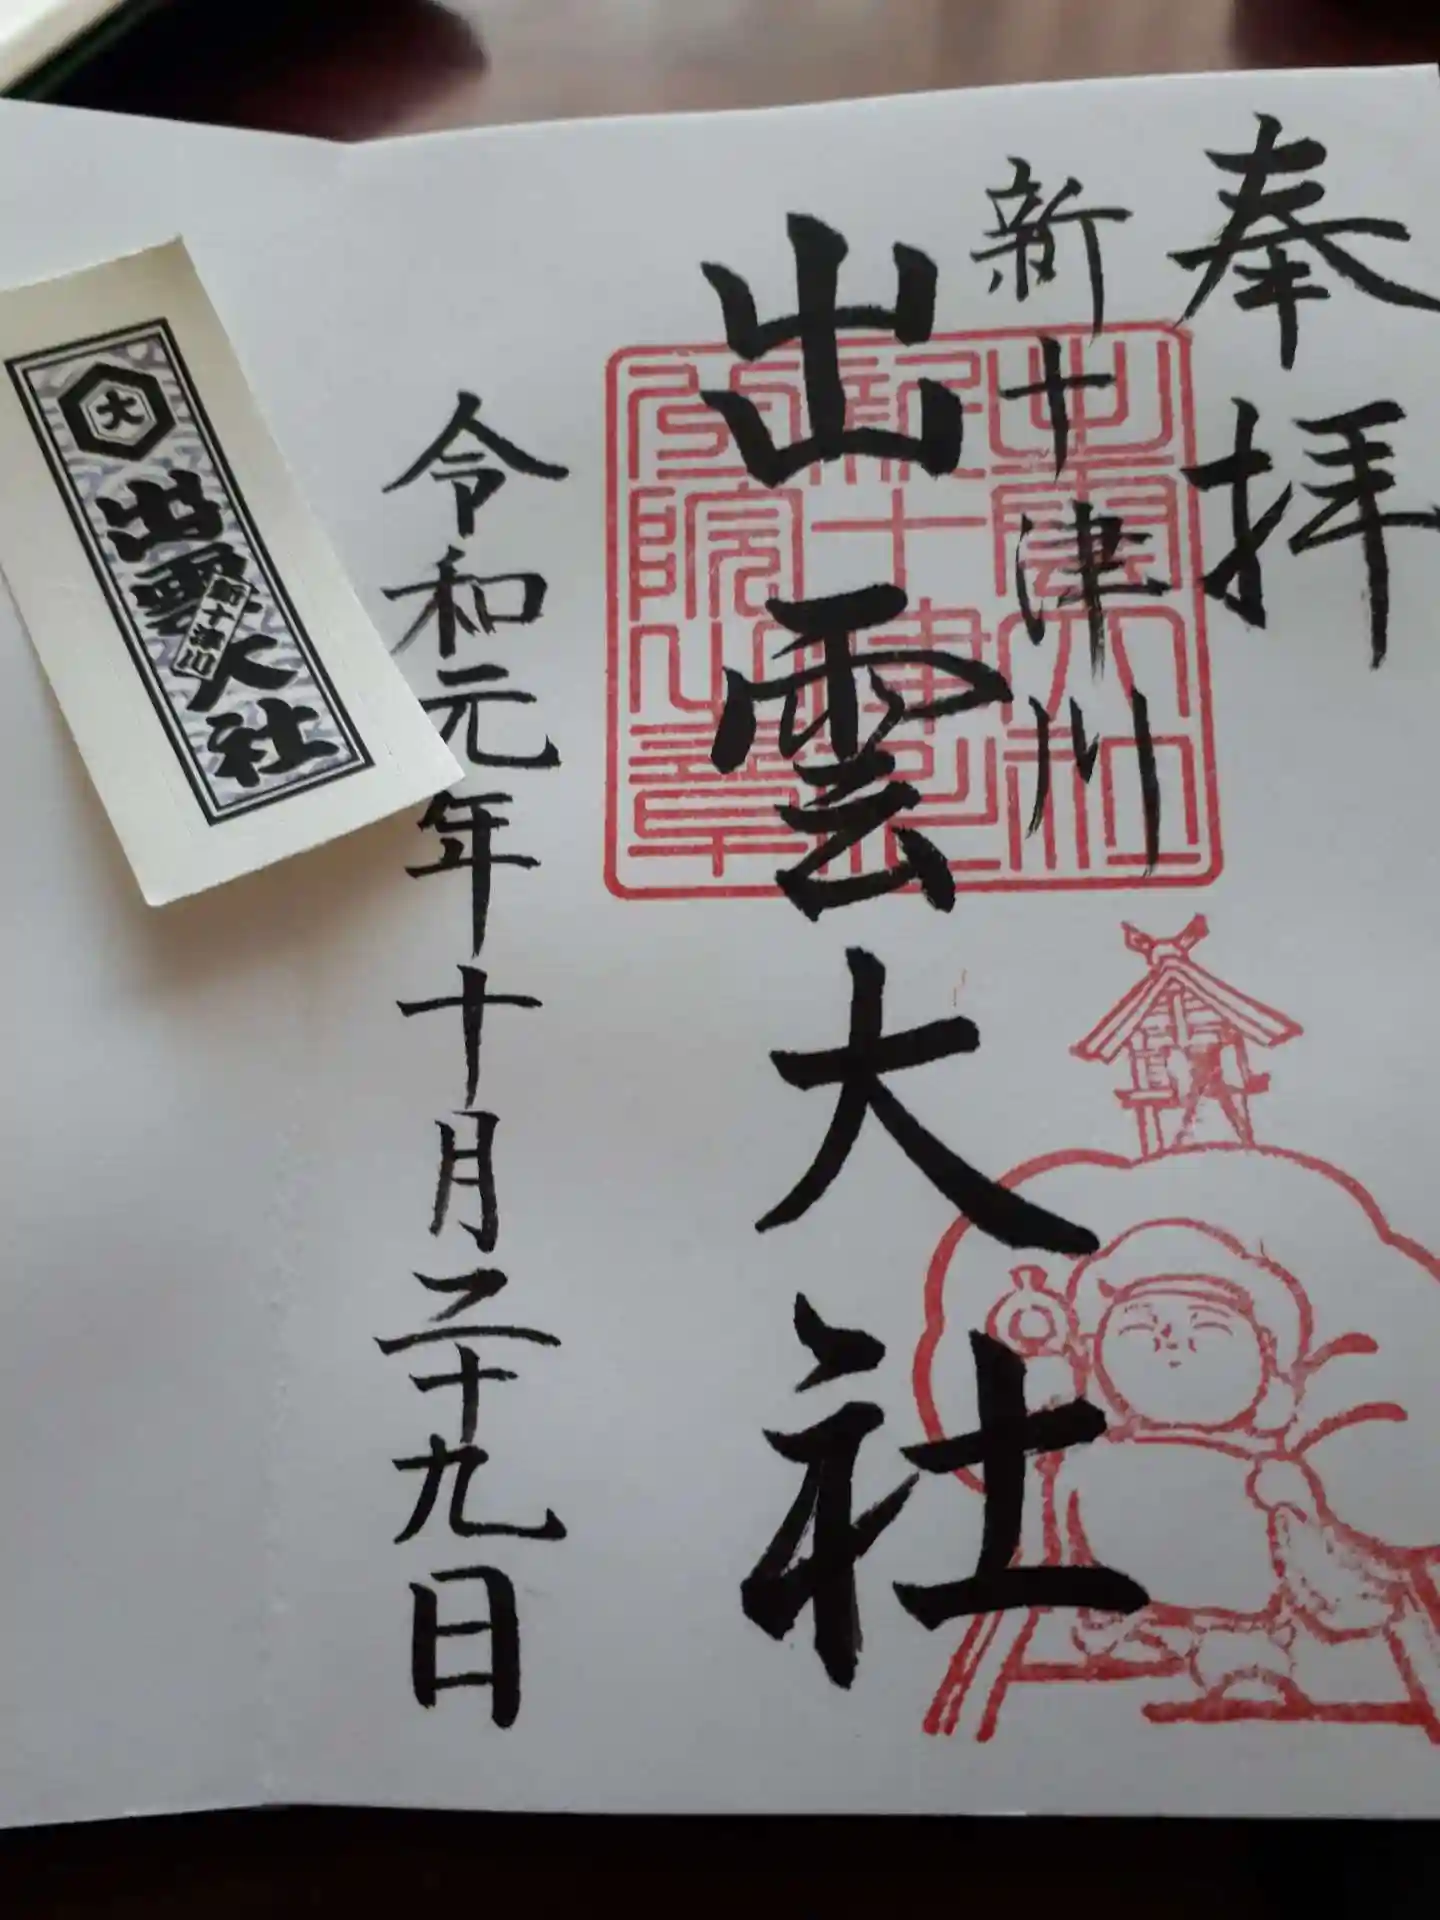 奉拝
新十津川
出雲大社
令和元年十月二十九日
出雲大社新十津川分院之章
大
出雲大社
新十津川